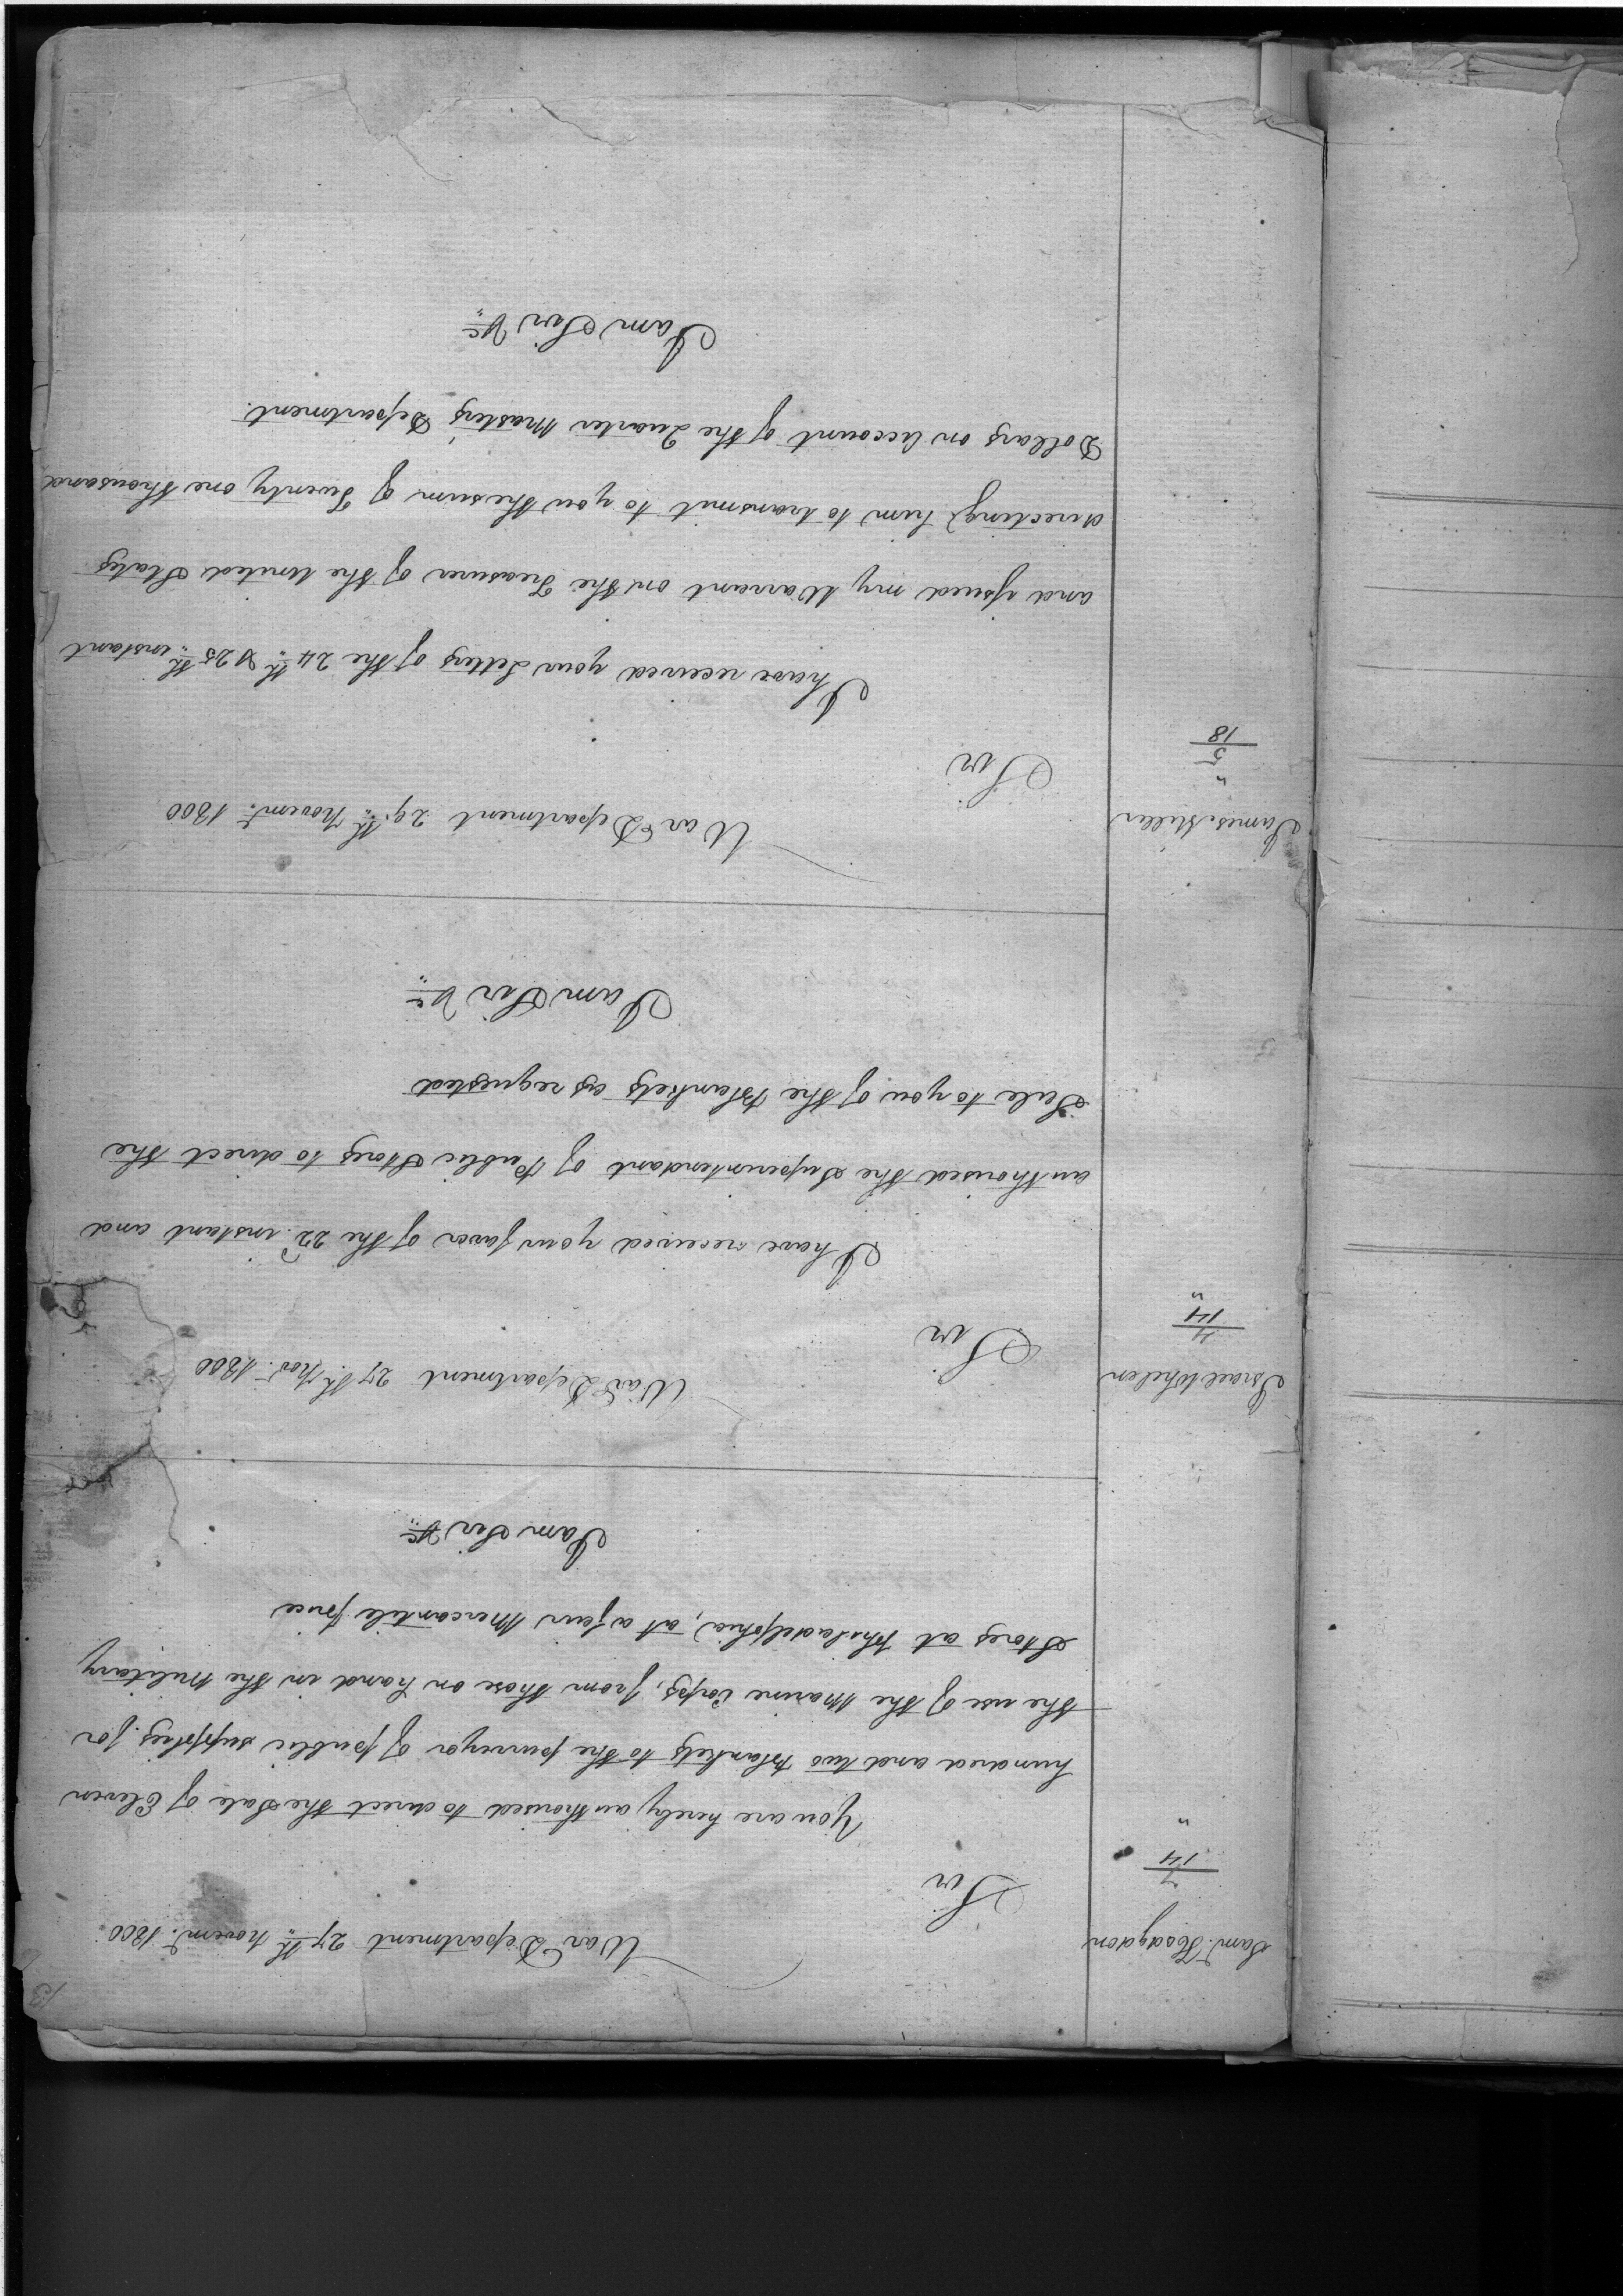 13
War Department 27th Novemr. 1800
Saml. Hodgdon
7
14
"
Sir
You are hereby authorised to direct the Sale of Eleven
hundred and two Blankets to the purveyor of public supplies for
the use of the Marine Corps, from those on hand in the Military
Stores at Philadelphia, at a fair Mercantile price
I am Sir &c
War Department 27th. Novr. 1800
Israel Whelen
4
14
"
Sir
I have received your favor of the 22d. instant and
authorised the Superintendant of Public Stores to direct the
Sale to you of the Blankets as requested
I am Sir &c
War Department 29th. Novemr. 1800
James Miller
"
5
18
Sir
I have received your Letters of the 24th & 25th instant
and issued my Warrant on the Treasurer of the United States
directing him to transmit to you the sum of Twenty one thousand
Dollars on Account of the Quarter Masters Department.
I am Sir &c